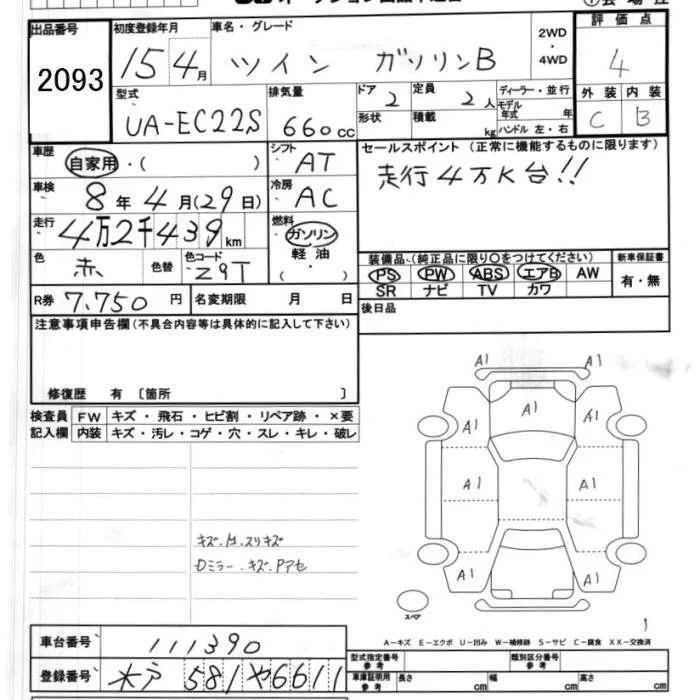 出品番号
2093
初度登録年月
15 4月
車名・グレード
ツイン ガソリンB
2WD
・
4WD
評価点
4
型式
UA-EC22S
排気量
660cc
ドア
2
定員
2人
形状
積載
kg
ディーラー・並行
モデル年式 年
ハンドル 左・右
外装 内装
C B
車歴
自家用・( )
シフト
AT
セールスポイント (正常に機能するものに限ります)
走行4万K台!!
車検
8年4月(29日)
冷房
AC
走行
4万2千439km
燃料
ガソリン
軽油
・( )
色
赤
色替
色コード
Z9T
装備品、(純正品に限り○をつけてください)
PS PW ABS エアB AW
SR ナビ TV カワ
新車保証書
有・無
R券 7,750円
名変期限 月 日
後日品
注意事項申告欄(不具合内容等は具体的に記入して下さい)
修復歴 有〔箇所 〕
検査員記入欄
FW キズ・飛石・ヒビ割・リペア跡・×要
内装 キズ・汚レ・コゲ・穴・スレ・キレ・破レ
A1 A1
A1 A1 A1
A1 A1
A1 A1
スペア
Dミラー・キズ・Pアセ
A-キズ E-エクボ U-凹み W-補修跡 S-サビ C-腐食 XX-交換済
車台番号
111390
登録番号
水戸 581 や6611
型式指定番号
参考
類別区分番号
参考
車庫証明用
参考
長さ cm
幅 cm
高さ cm